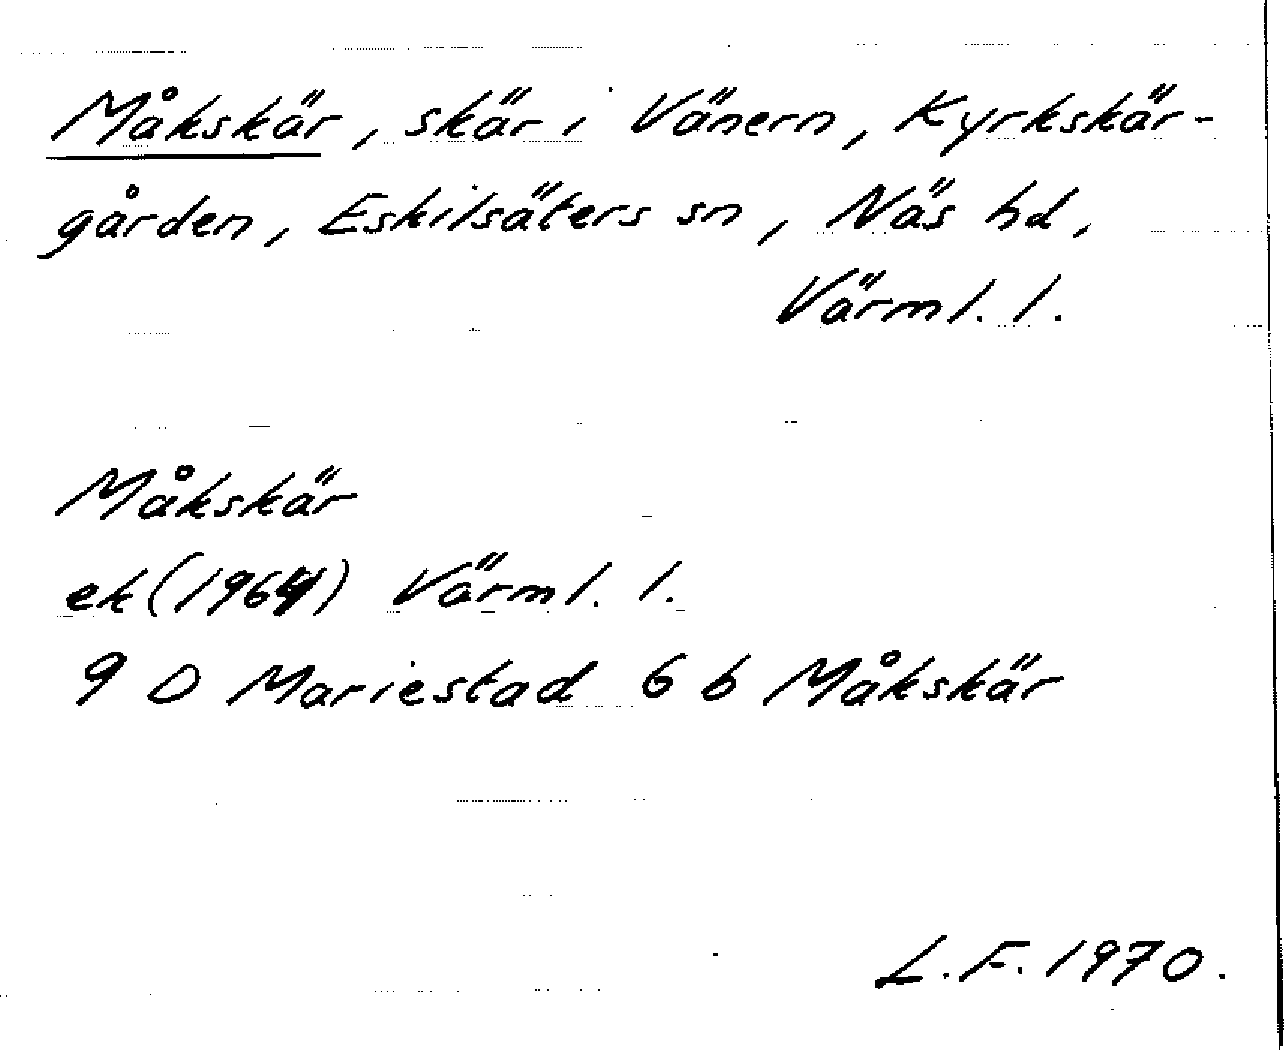 Måkskär, skär i Vänern, Kyrkskär-
gården, Eskilsäters sn, Näs hd,
Värml. l.
Måkskär
ek (1964) Värml. l.
9 D Mariestad 6 b Måkskär
L.F. 1970.